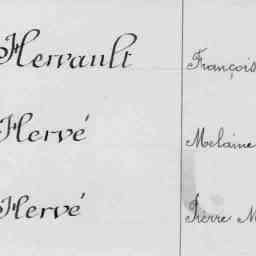 Hervault François
Hervé Melaine
Hervé Pierre M